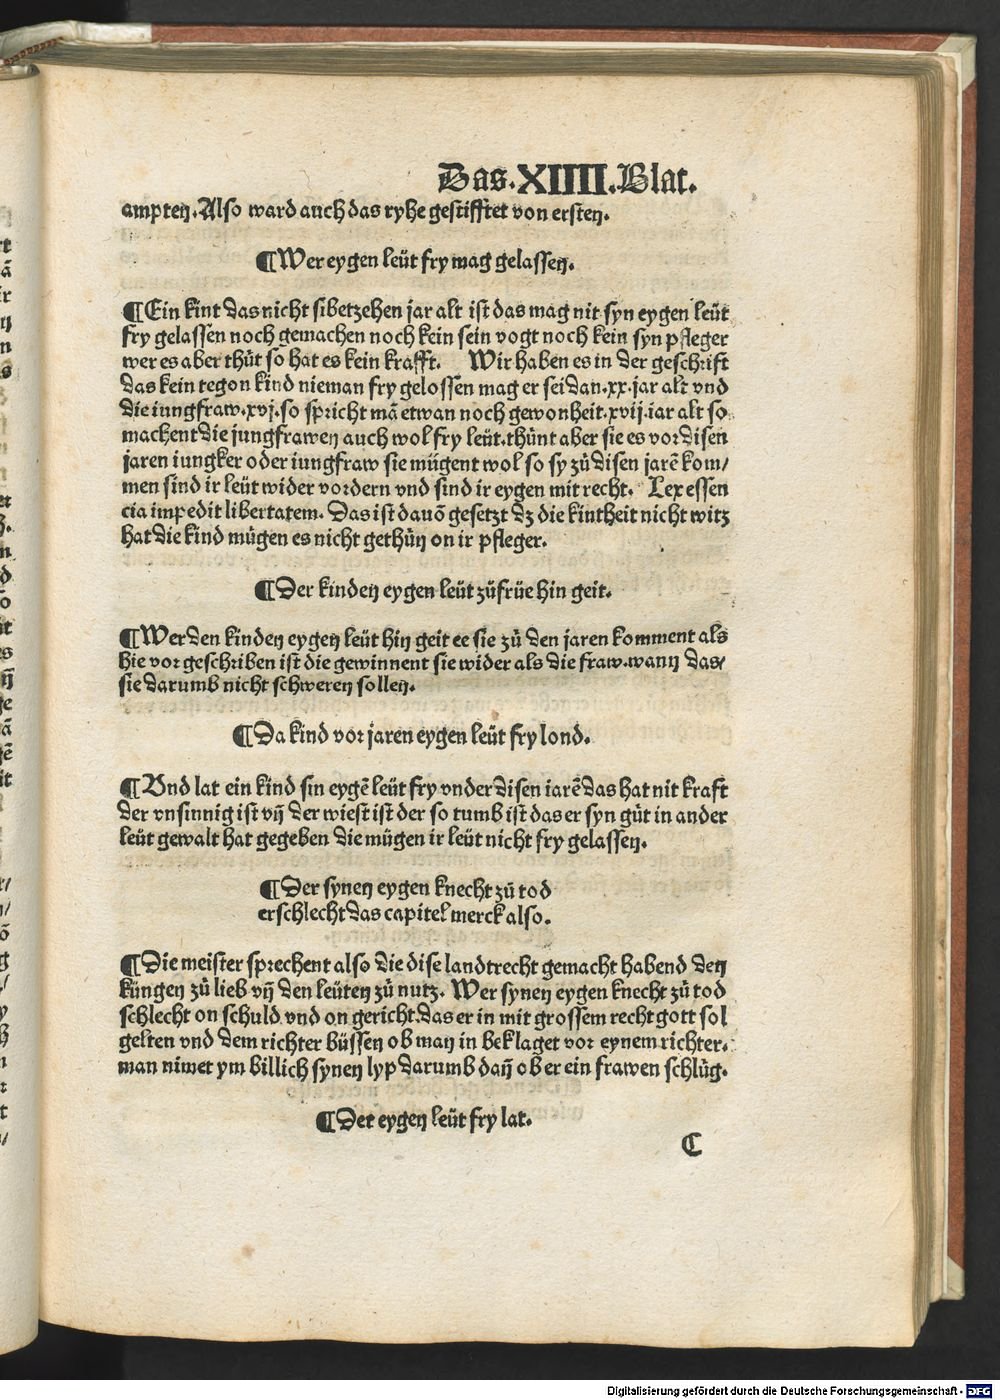 Das.XIIII.Blat.
ampten. Also ward auch das ryhe gestifftet von ersten.
¶ Wer eygen leüt fry mag gelassen.
¶ Ein kint das nicht sibetzehen jar alt ist das mag nit syn eygen leüt
fry gelassen noch gemachen noch kein sein vogt noch kein syn pfleger
wer es aber thüt so hat es kein krafft. Wir haben es in der geschrift
das kein tegon kind nieman fry gelossen mag er sei dan.xx.jar alt vnd
die iungfraw.xvj.so spricht mā etwan noch gewonheit.xvij.iar alt so
machent die jungfrawen auch wol fry leüt.thünt aber sie es vor disen
jaren iungker oder iungfraw sie mügent wol so sy zů disen jarē kom/
men sind ir leüt wider vordern vnd sind ir eygen mit recht. Lex essen
cia impedit libertatem. Das ist dauō gesetzt dz die kintheit nicht witz
hat die kind mügen es nicht gethün on ir pfleger.
¶ Der kinden eygen leüt zůfrüe hin geit.
¶ Wer den kinden eygen leüt hin geit ee sie zů den jaren komment als
hie vor geschriben ist die gewinnent sie wider als die fraw.wann das/
sie darumb nicht schweren sollen.
¶ Da kind vor jaren eygen leüt fry lond.
¶ Vnd lat ein kind sin eygē leüt fry vnder disen iarē das hat nit kraft
der vnsinnig ist vn̄ der wiest ist der so tumb ist das er syn güt in ander
leüt gewalt hat gegeben die mügen ir leüt nicht fry gelassen.
¶ Der synen eygen knecht zů tod
erschlecht das capitel merck also.
¶ Die meister sprechent also die dise landtrecht gemacht habend den
küngen zů lieb vn̄ den leüten zů nutz. Wer synen eygen knecht zů tod
schlecht on schuld vnd on gericht das er in mit grossem recht gott sol
gelten vnd dem richter büssen ob man in beklaget vor eynem richter.
man nimet ym billich synen lyp darumb dan̄ ob er ein frawen schlüg.
¶ Der eygen leüt fry lat.
C
Digitalisierung gefördert durch die Deutsche Forschungsgemeinschaft - DFG